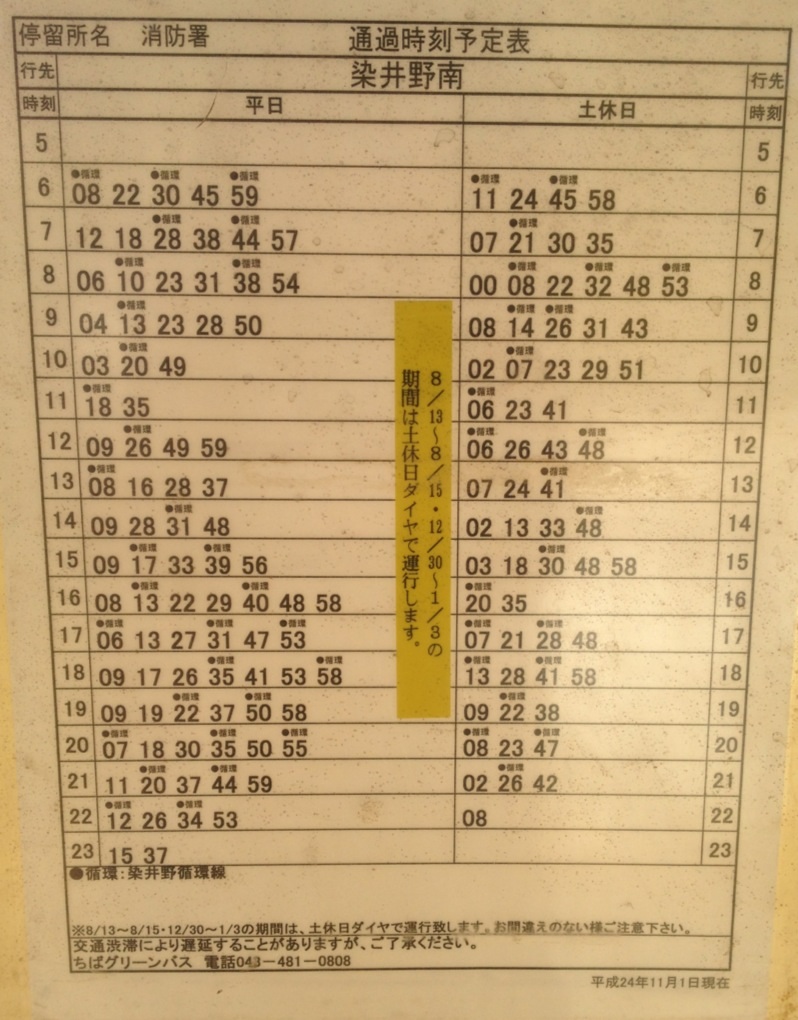 停留所名 消防署 通過時刻予定表
行先 染井野南 行先
時刻 平日 土休日 時刻
5 5
●循環 ●循環 ●循環 ●循環 ●循環
6 08 22 30 45 59 11 24 45 58 6
●循環 ●循環 ●循環
7 12 18 28 38 44 57 07 21 30 35 7
●循環 ●循環 ●循環 ●循環 ●循環
8 06 10 23 31 38 54 00 08 22 32 48 53 8
●循環 ●循環 ●循環
9 04 13 23 28 50 08 14 26 31 43 9
●循環 ●循環
10 03 20 49 02 07 23 29 51 10
●循環 ●循環
11 18 35 06 23 41 11
●循環 ●循環 ●循環
12 09 26 49 59 06 26 43 48 12
●循環 ●循環
13 08 16 28 37 07 24 41 13
●循環 ●循環
14 09 28 31 48 02 13 33 48 14
●循環 ●循環 ●循環
15 09 17 33 39 56 03 18 30 48 58 15
●循環 ●循環 ●循環
16 08 13 22 29 40 48 58 20 35 16
●循環 ●循環 ●循環 ●循環 ●循環
17 06 13 27 31 47 53 07 21 28 48 17
●循環 ●循環 ●循環 ●循環
18 09 17 26 35 41 53 58 13 28 41 58 18
●循環 ●循環 ●循環
19 09 19 22 37 50 58 09 22 38 19
●循環 ●循環 ●循環 ●循環 ●循環
20 07 18 30 35 50 55 08 23 47 20
●循環 ●循環 ●循環
21 11 20 37 44 59 02 26 42 21
●循環 ●循環
22 12 26 34 53 08 22
23 15 37 23
8/13～8/15・12/30～1/3の
期間は土休日ダイヤで運行します。
●循環:染井野循環線
※8/13～8/15・12/30～1/3の期間は、土休日ダイヤで運行致します。お間違えのない様ご注意下さい。
交通渋滞により遅延することがありますが、ご了承ください。
ちばグリーンバス 電話043－481－0808
平成24年11月1日現在